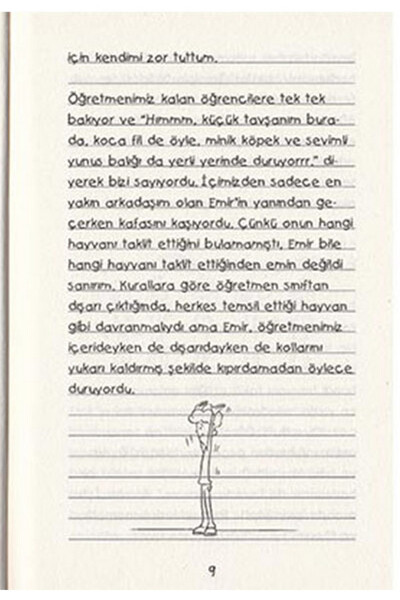 için kendimi zor tuttum.
Öğretmenimiz kalan öğrencilere tek tek
bakıyor ve “Hımmm, küçük tavşanım bura-
da, koca fil de öyle, minik köpek ve sevimli
yunus balığı da yerli yerinde duruyorrr,” di-
yerek bizi sayıyordu. İçimizden sadece en
yakın arkadaşım olan Emir’in yanından ge-
çerken kafasını kaşıyordu. Çünkü onun hangi
hayvanı taklit ettiğini bulamamıştı. Emir bile
hangi hayvanı taklit ettiğinden emin değildi
sanırım. Kurallara göre öğretmen sınıftan
dışarı çıktığında, herkes temsil ettiği hayvan
gibi davranmalıydı ama Emir, öğretmenimiz
içerideyken de dışarıdayken de kollarını
yukarı kaldırmış şekilde kıpırdamadan öylece
duruyordu.
9